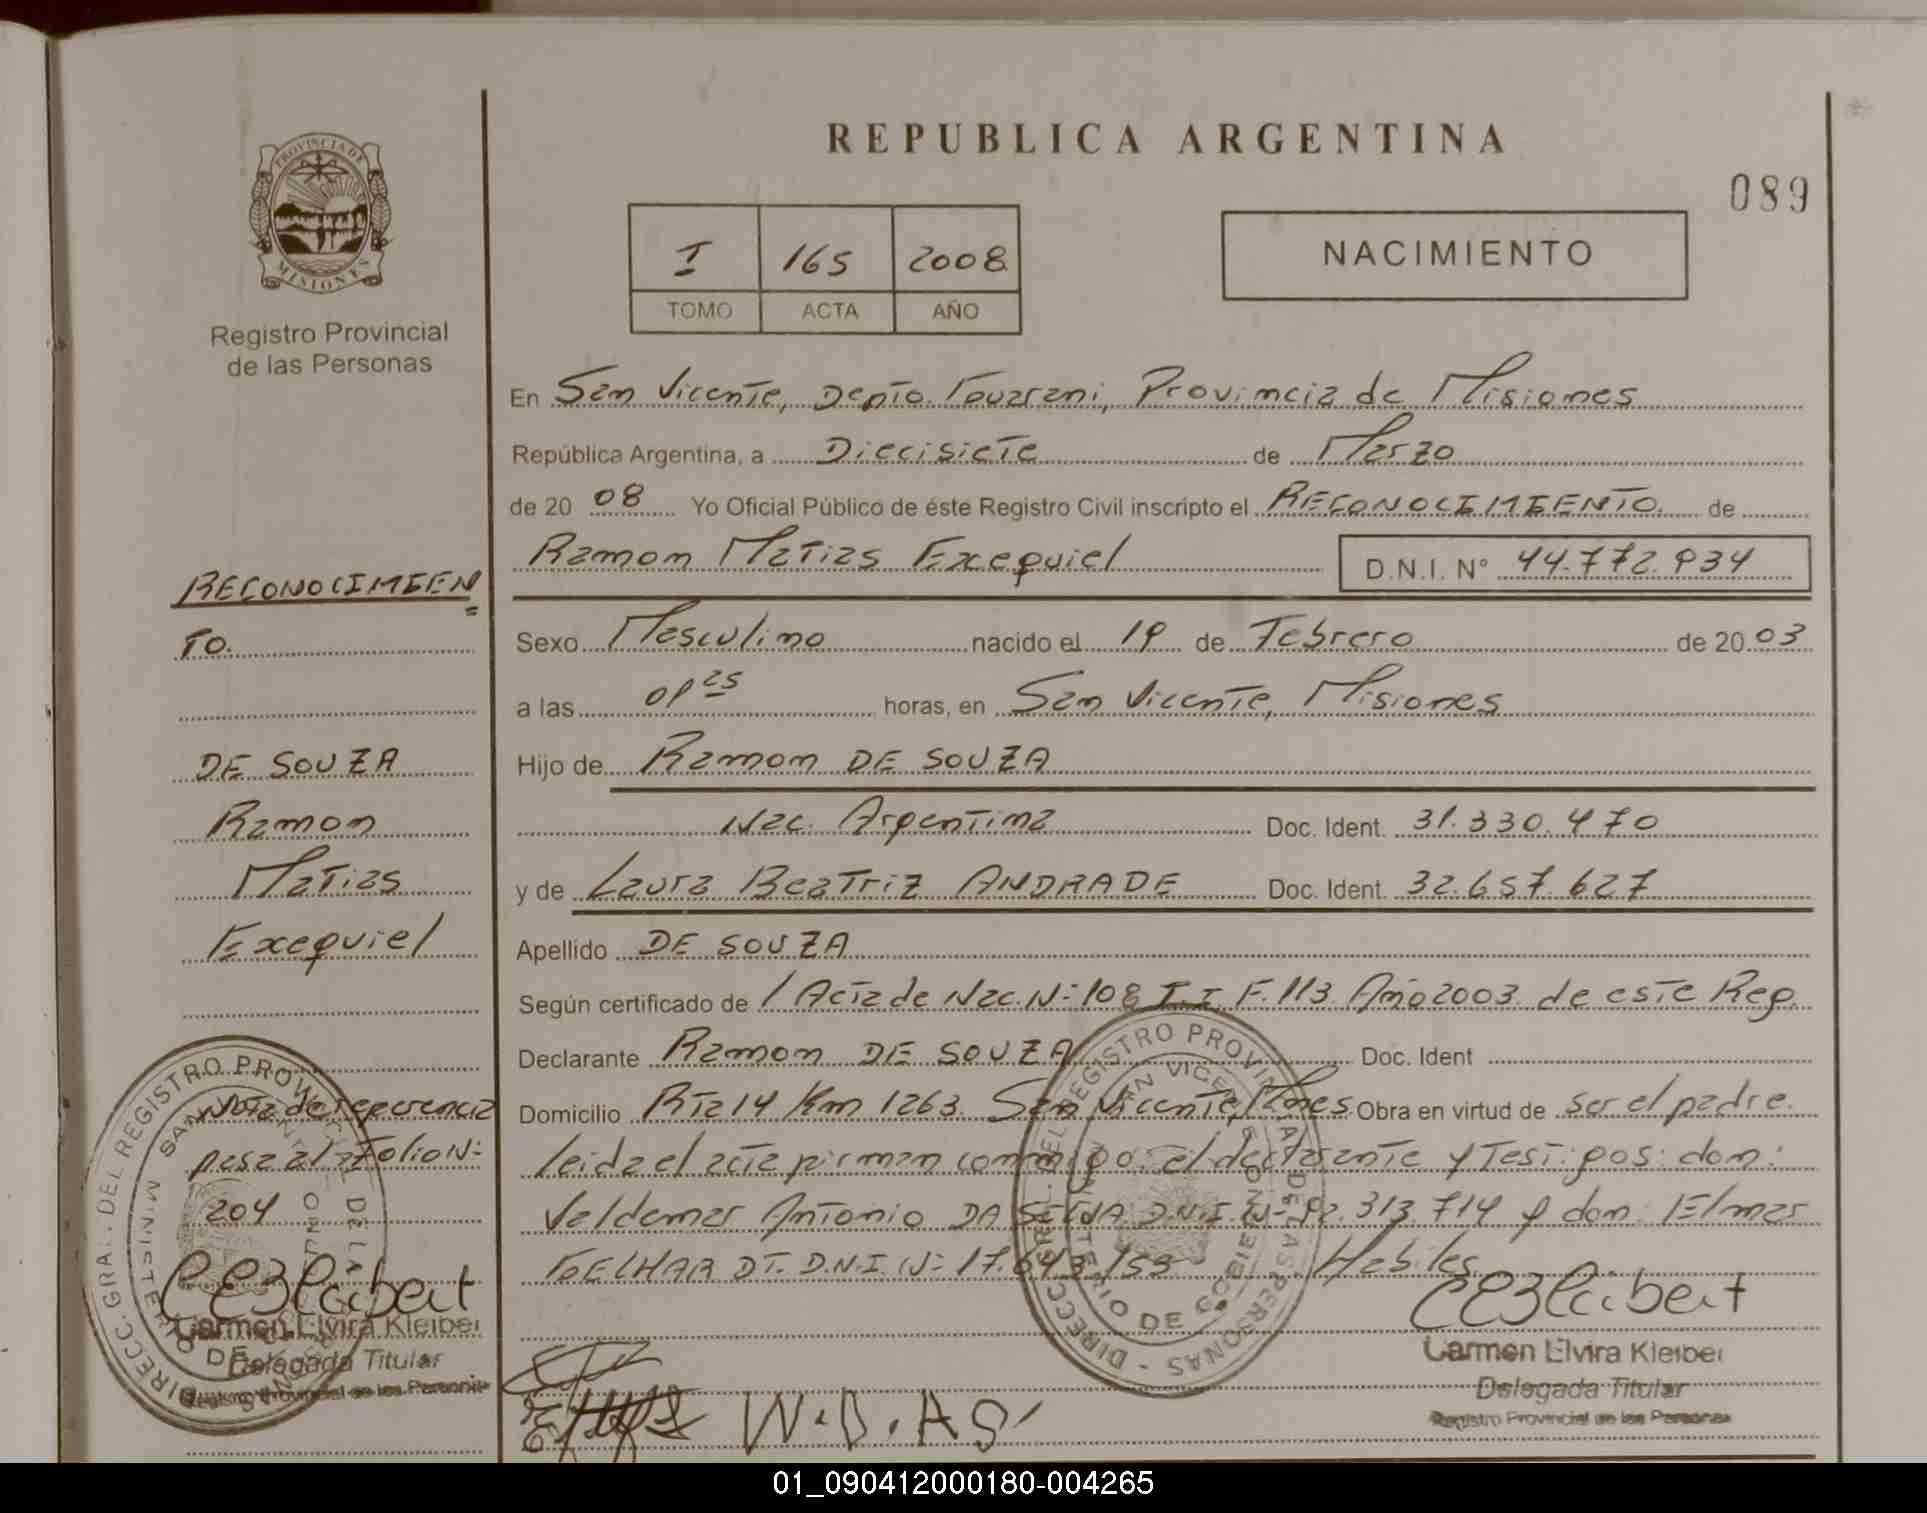 REPUBLICA ARGENTINA
089
PROVINCIA DE
MISIONES
Registro Provincial
de las Personas
I 165 2008
TOMO ACTA AÑO
NACIMIENTO
En San Vicente, Depto. Guarani, Provincia de Misiones
República Argentina, a Diecisiete de Marzo
de 20 08 Yo Oficial Público de éste Registro Civil inscripto el RECONOCIMIENTO de
Ramon Matias Exequiel D.N.I. Nº 44.772.934
Sexo Masculino nacido el 19 de Febrero de 20 03
a las 09 25 horas, en San Vicente, Misiones
Hijo de Ramon DE SOUZA
Nac. Argentina Doc. Ident. 31.330.470
y de Laura Beatriz ANDRADE Doc. Ident. 32.657.627
Apellido DE SOUZA
Según certificado de / Acta de Nac. Nº 108 T. I F. 113 Año 2003 de este Reg.
Declarante Ramon DE SOUZA Doc. Ident
Domicilio Rta 14 Km 1263 San Vicente, Mnes Obra en virtud de ser el padre
leida el acta firman conmigo el declarante y Testigos: don:
Valdemar Antonio DA SILVA D.N.I. Nº 92.313.714 y don Elmar
D.N.I. Nº 17.643.153 Habiles
Carmen Elvira Kleiber
Delegada Titular
Registro Provincial de las Personas
W.D.AS
RECONOCIMIEN
TO.
DE SOUZA
Ramon
Matias
Exequiel
Nota de referencia
pasa al Folio Nº
204
Carmen Elvira Kleiber
Delegada Titular
Registro Provincial de las Personas
DIRECC. GRAL. DEL REGISTRO PROVINCIAL DE LAS PERSONAS
SAN VICENTE
MINISTERIO DE GOBIERNO
01_090412000180-004265